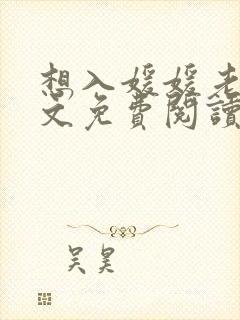 想入媛媛老
文免費閱讀
吴昊